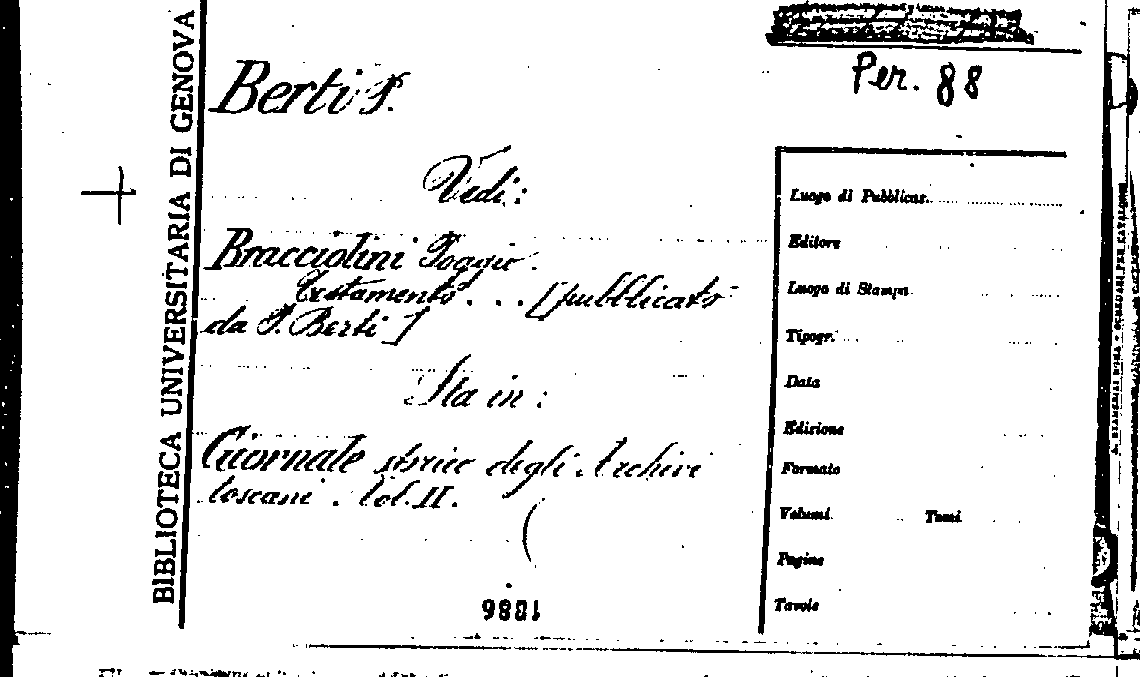 BIBLIOTECA UNIVERSITARIA DI GENOVA
Per. 88
Berti P.
Vedi:
Bracciolini Poggio.
Testamento . . . [pubblicato
da P. Berti]
Sta in:
Giornale storico degli Archivi
toscani. Vol. II.
1886
Luogo di Pubblicaz.
Editore
Luogo di Stampa
Tipogr.
Data
Edizione
Formato
Volumi Tomi
Pagine
Tavole